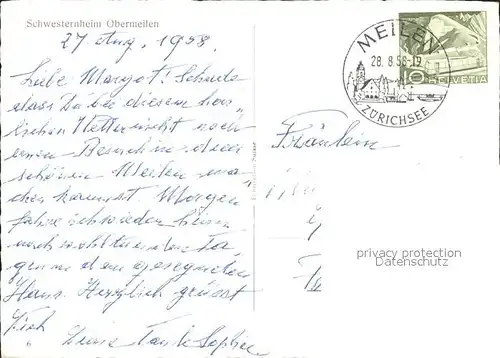 Schwesternheim Obermeilen
27 Aug. 1958.
Liebe Margot! Schade
dass Du bei diesem herr„
lichen Wetter nicht noch
einen Besuch in dem
schönen Meilen ma„
chen kannst Morgen
fahre ich wieder heim
nach wohltuenden Ta„
gen in dem gesegneten
Haus. Herzlich grüsst
Dich
Deine Tante Sophie
MEILEN
28.8.58-19
ZÜRICHSEE
10 HELVETIA
Fräulein
privacy protection
Datenschutz